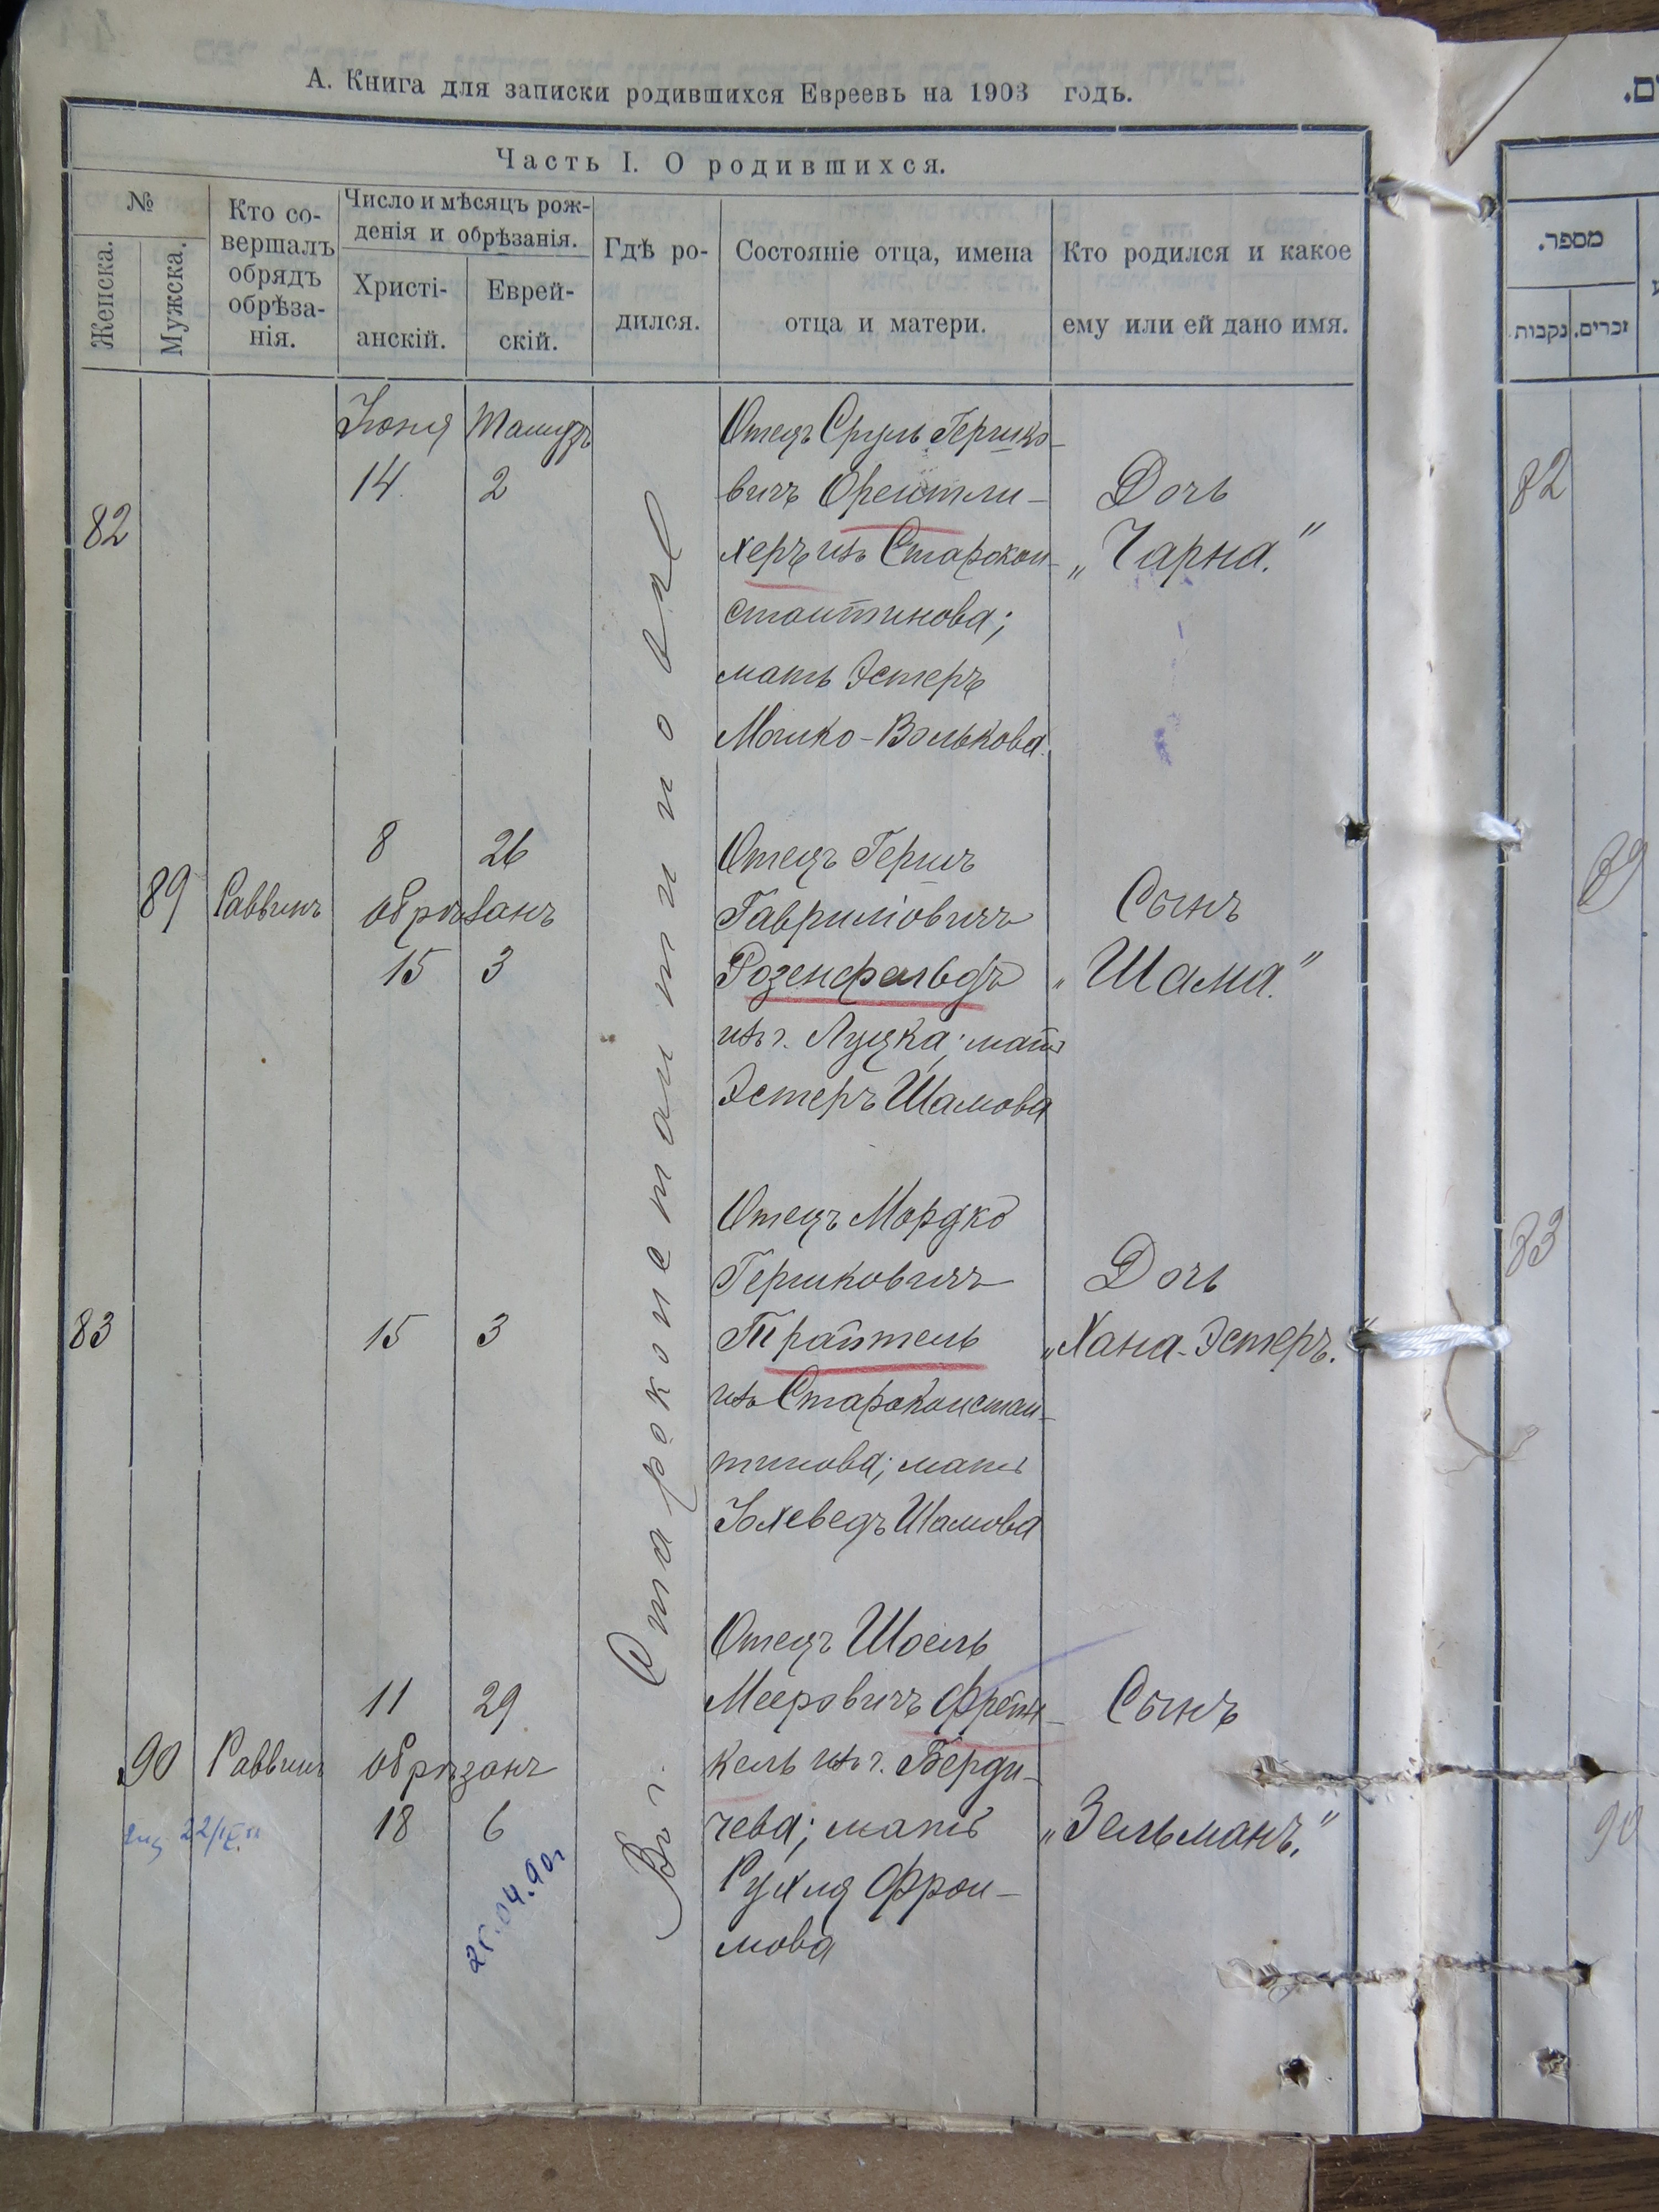 А. Книга для записки родившихся Евреевъ на 1903 годъ.
Часть I. О родившихся.
№
Женска.
Мужска.
Кто со-
вершалъ
обрядъ
обрѣза-
нія.
Число и мѣсяцъ рож-
денія и обрѣзанія.
Христі-
анскій.
Еврей-
скій.
Гдѣ ро-
дился.
Состояніе отца, имена
отца и матери.
Кто родился и какое
ему или ей дано имя.
Въ г. Староконстантиновѣ
82
Іюня Тамузъ
14. 2
Отецъ Сруль Гершко-
вичъ Орентли-
херъ изъ Старокон-
стантинова;
мать Эстеръ
Мошко-Волькова.
Дочь
„Чарна."
89 Раввинъ
8 26
обрѣзанъ
15 3
Отецъ Гершъ
Гавриліовичъ
Розенфельдъ
изъ г. Луцка; мать
Эстеръ Шамова
Сынъ
„Шама."
83
15 3
Отецъ Мордко
Гершковичъ
Трайтель
изъ Староконстан-
тинова; мать
Іохеведъ Шамова
Дочь
„Хана-Эстеръ."
90 Раввинъ
11 29
обрѣзанъ
18 6
Отецъ Шоель
Мееровичъ Френ-
кель изъ г. Берди-
чева; мать
Рухля Фрои-
мова
Сынъ
„Зельманъ."
22/IX
25.04.90г
ם.
מספר.
נקבות.
זכרים.
82
89
83
90